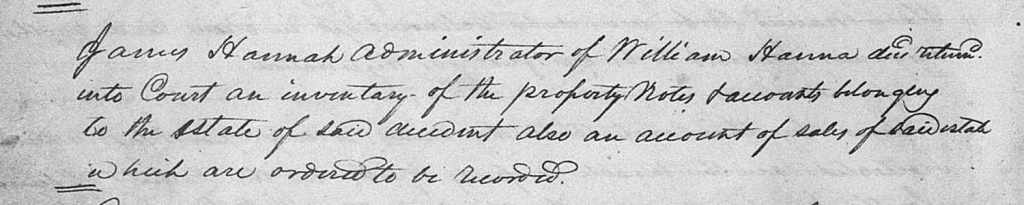 James Hannah Administrator of William Hanna decd return
into Court an inventary of the property Notes & accounts belonging
to the Estate of said decedent also an account of sales of said estate
which are ordered to be recorded.